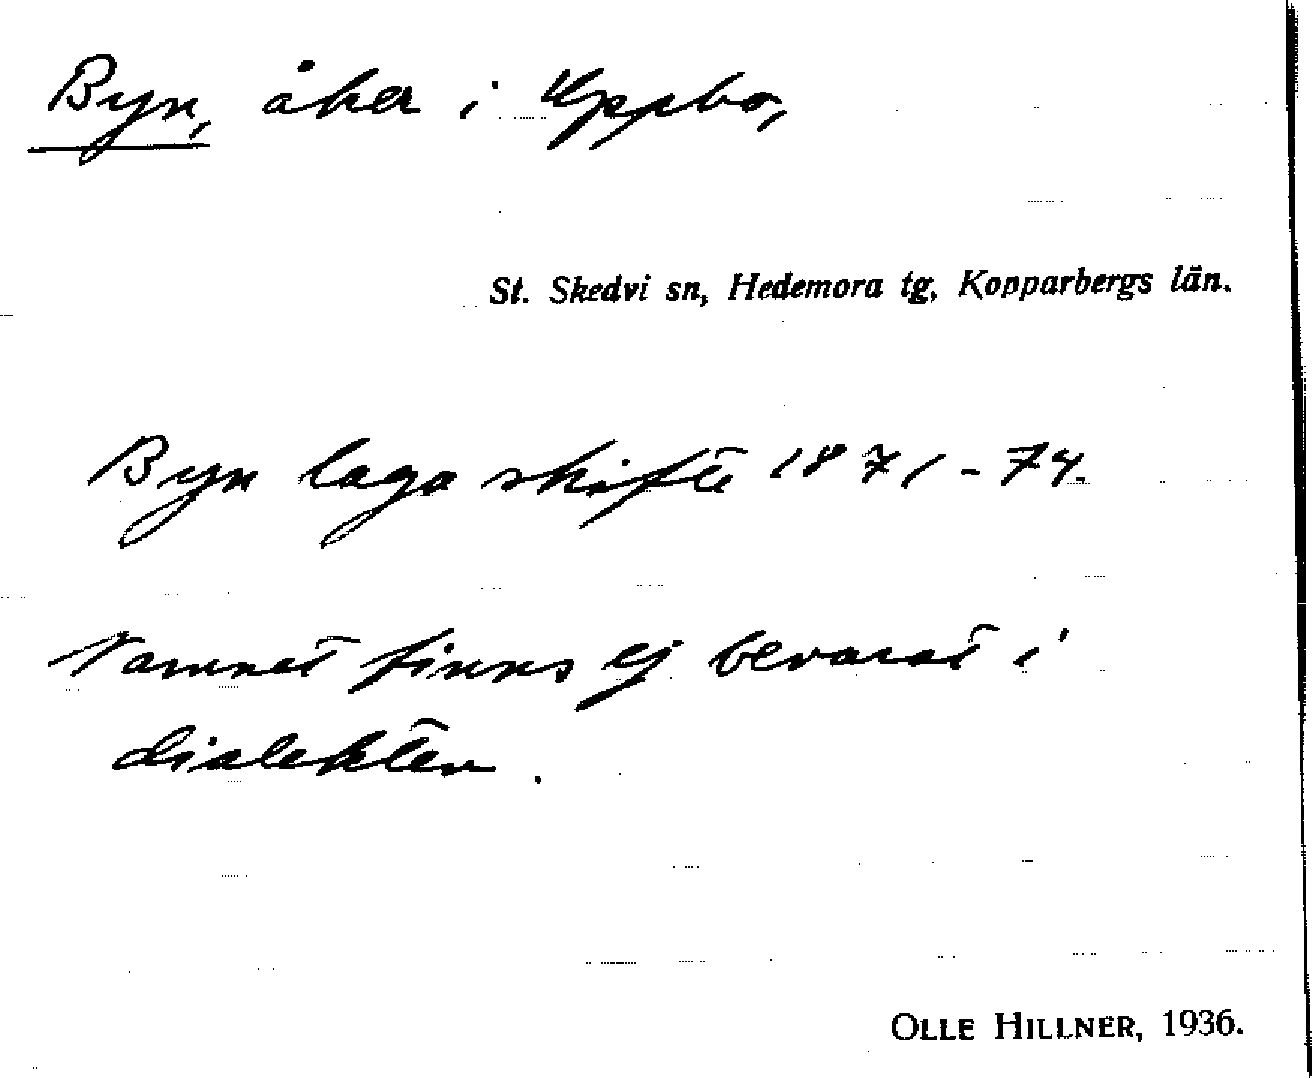 Byn, åker i Uppbo,
St. Skedvi sn, Hedemora tg, Kopparbergs län.
Byn laga skifte 1871-74.
Namnet finns ej bevarat i
dialekten.
OLLE HILLNER, 1936.